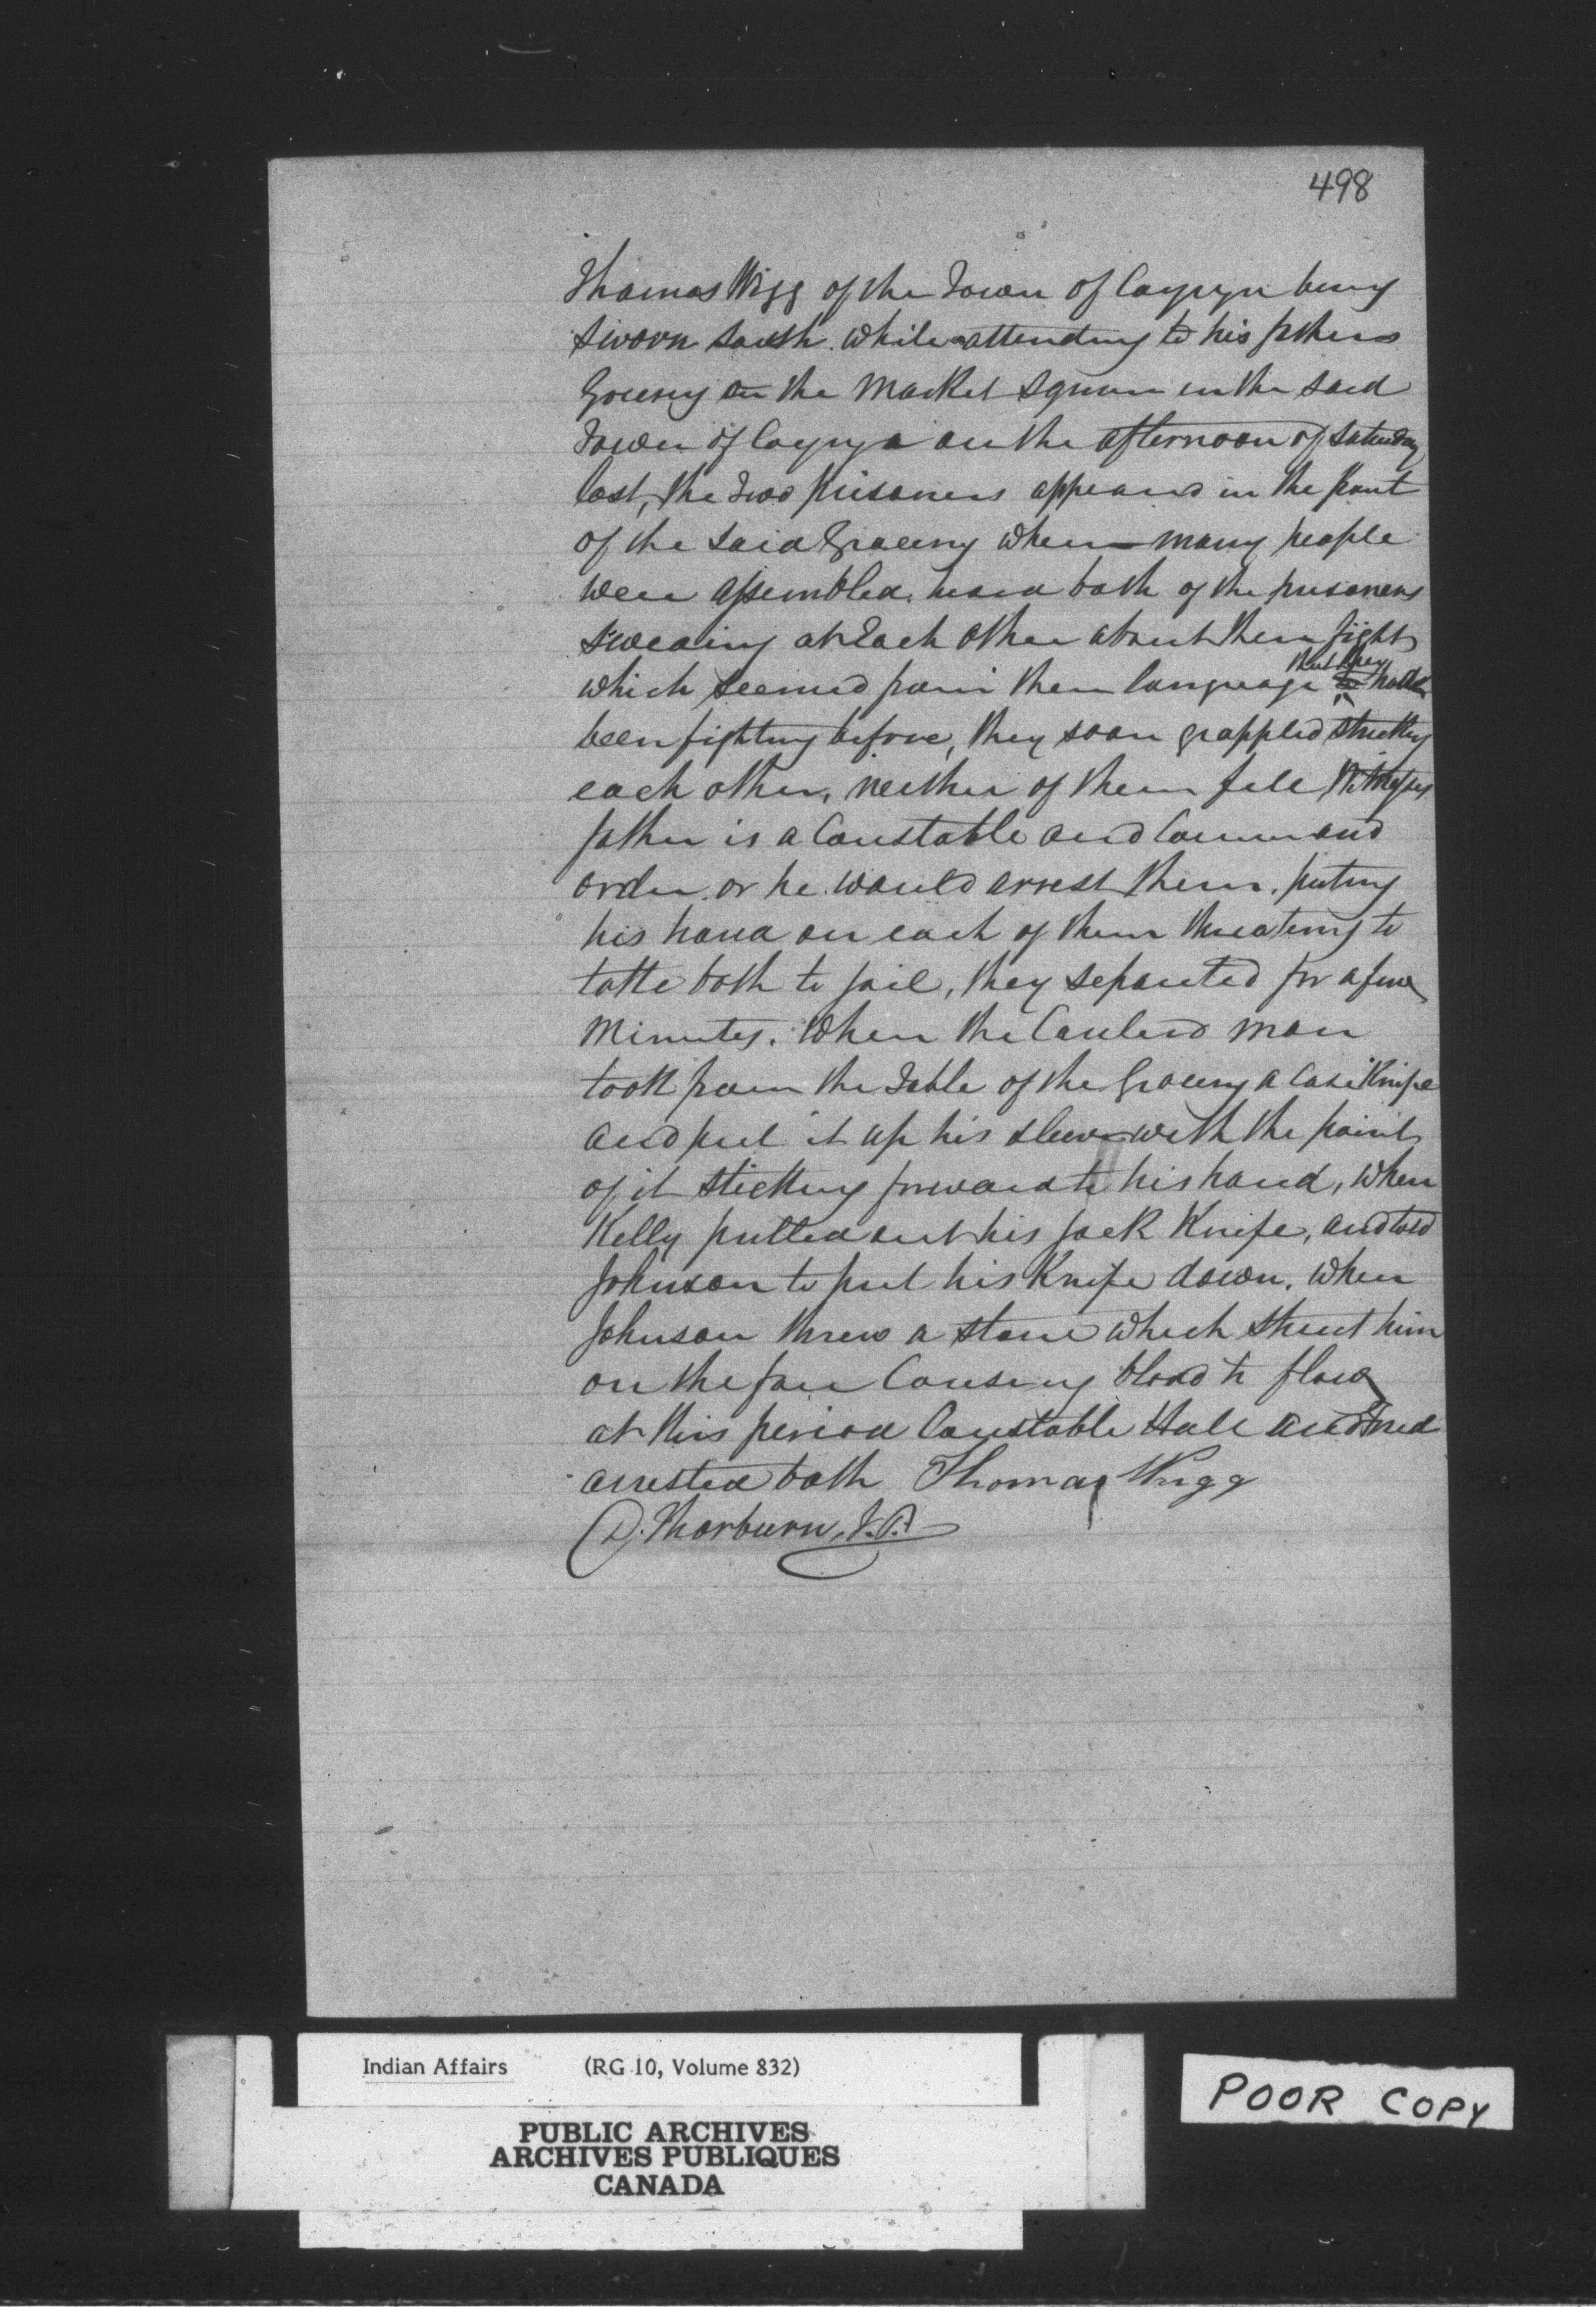 498
Thomas Wigg of the Town of Cayuga being
sworn saith while attending to his fathers
Grocery on the Market Square in the said
Town of Cayuga on the afternoon of Saturday
last, the two prisoners appeared in the front
of the said Grocery where many people
were assembled, heard both of the prisoners
swearing at each other about their fight
which seemed from their language that they had
been fighting before, they soon grappled striking
each other, neither of them fell Witness
father is a Constable and Command
order or he would arrest them, puting
his hand on each of them threating to
take both to jail, they separated for a few
minutes. When the Coulerd man
took from the Table of the Grocery a Case Knife
and put it up his sleeve with the point
of it sticking forward to his hand, when
Kelly pulled out his jack Knife, and told
Johnson to put his Knife down. When
Johnson threw a stone which struct him
on the face Causing blood to flow
at this period Constable Hall and
arrested both Thomas Wigg
D. Thorburn, J.P.
Indian Affairs (RG 10, Volume 832)
PUBLIC ARCHIVES
ARCHIVES PUBLIQUES
CANADA
POOR COPY